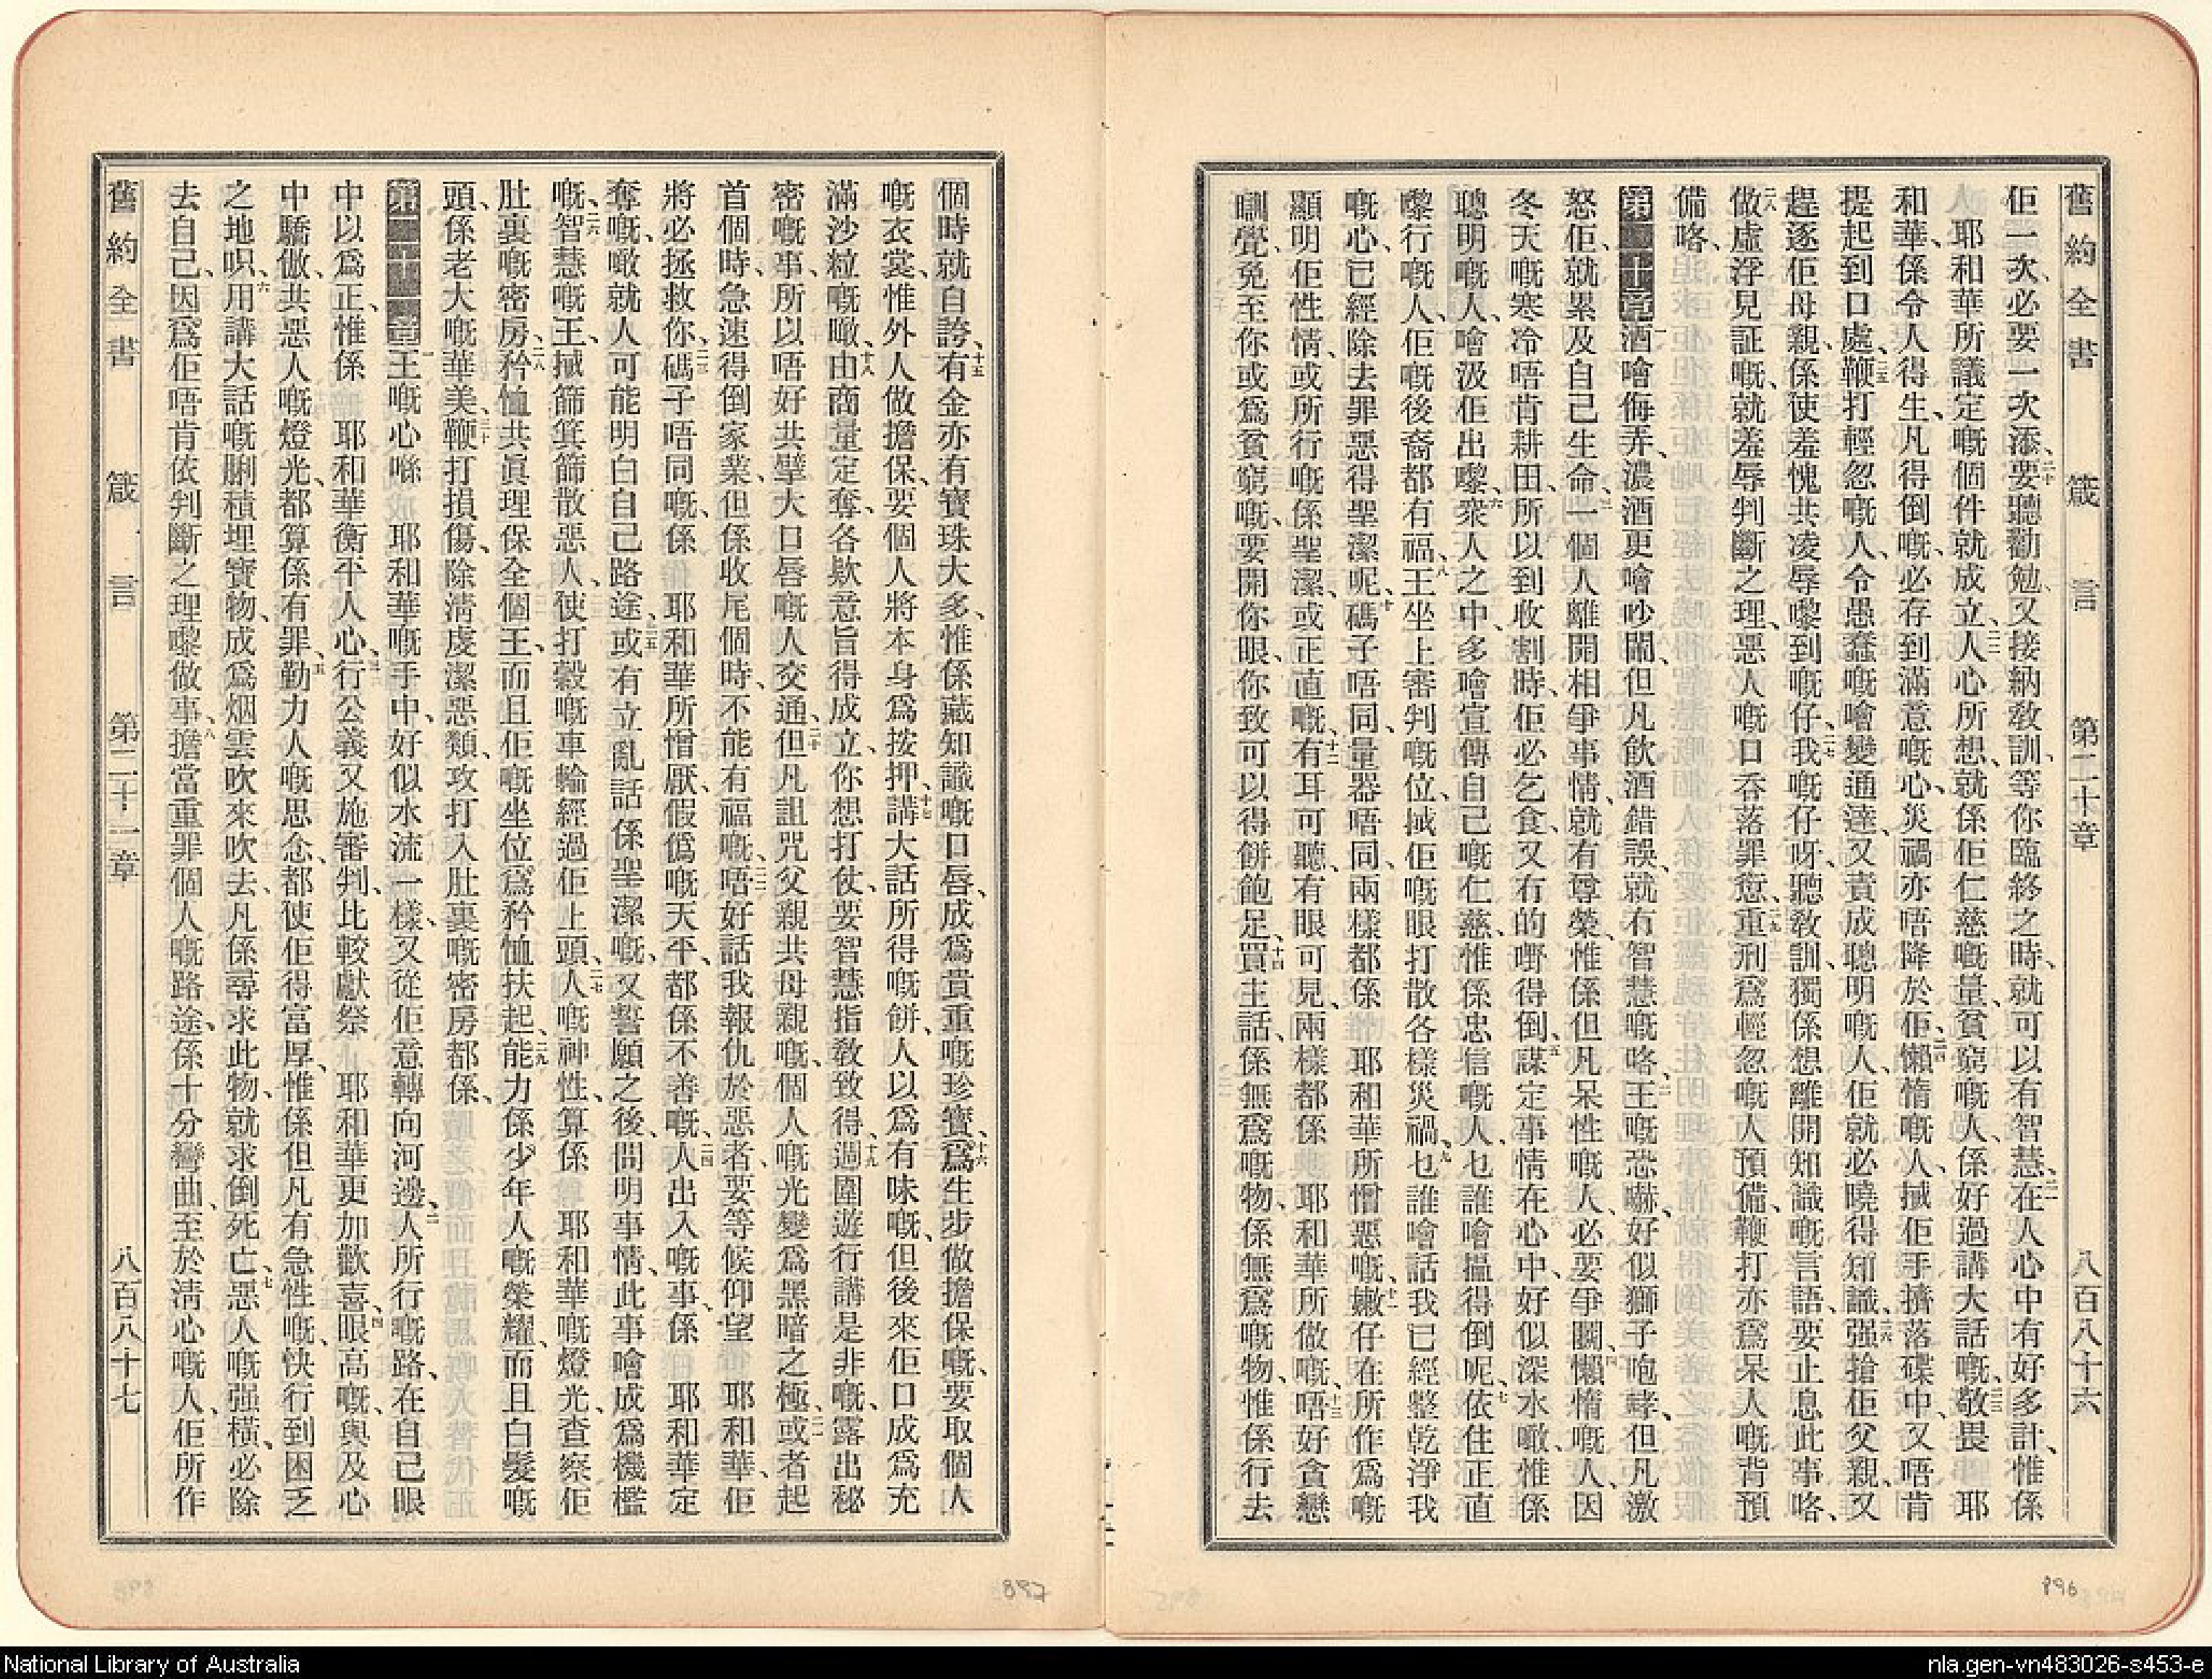 舊約全書 箴言 第二十章 八百八十六
佢一次必要一次添、二十要聽勸勉、又接納敎訓、等你臨終之時、就可以有智慧、二一在人心中有好多計、惟係
耶和華所議定嘅個件就成立、二二人心所想、就係佢仁慈嘅量、貧窮嘅人、係好過講大話嘅、二三敬畏 耶
和華、係令人得生、凡得倒嘅、必存到滿意嘅心、災禍亦唔降於佢、二四懶惰嘅人、搣佢手擠落碟中、又唔肯
提起到口處、二五鞭打輕忽嘅人、令愚蠢嘅噲變通達、又責成聰明嘅人、佢就必曉得知識、二六强搶佢父親、又
趕逐佢母親、係使羞愧共凌辱嚟到嘅仔、二七我嘅仔呀、聽敎訓、獨係想離開知識嘅言語、要止息此事咯、
二八做虛浮見証嘅、就羞辱判斷之理、惡人嘅口吞落罪愆、二九重刑爲輕忽嘅人預備、鞭打亦爲呆人嘅背預
備咯、
第二十章 一酒噲侮弄、濃酒更噲吵鬧、但凡飲酒錯誤、就冇智慧嘅咯、二王嘅恐嚇、好似獅子咆哮、但凡激
怒佢、就累及自己生命、三一個人離開相爭事情、就有尊榮、惟係但凡呆性嘅人、必要爭鬭、四懶惰嘅人、因
冬天嘅寒冷唔肯耕田、所以到收割時、佢必乞食、又冇的嘢得倒、五謀定事情在心中、好似深水噉、惟係
聰明嘅人、噲汲佢出嚟、六衆人之中、多噲宣傳自己嘅仁慈、惟係忠信嘅人、乜誰噲搵得倒呢、七依住正直
嚟行嘅人、佢嘅後裔都有福、八王坐上審判嘅位、搣佢嘅眼打散各樣災禍、九乜誰噲話我已經整乾淨我
嘅心、已經除去罪惡得聖潔呢、十碼子唔同、量器唔同、兩樣都係 耶和華所憎惡嘅、十一嫩仔在所作爲嘅
顯明佢性情、或所行嘅係聖潔、或正直嘅、十二有耳可聽、有眼可見、兩樣都係 耶和華所做嘅、十三唔好貪戀
瞓覺、免至你或爲貧窮嘅、要開你眼、你致可以得餅飽足、十四買主話、係無爲嘅物、係無爲嘅物、惟係行去
個時就自誇、十五有金亦有寶珠大多、惟係藏知識嘅口唇、成爲貴重嘅珍寶、十六爲生步做擔保嘅、要取個人
嘅衣裳、惟外人做擔保、要個人將本身爲按押、十七講大話所得嘅餅、人以爲有味嘅、但後來佢口成爲充
滿沙粒嘅噉、十八由商量定奪、各欵意旨得成立、你想打仗、要智慧指敎致得、十九週圍遊行講是非嘅、露出秘
密嘅事、所以唔好共擘大口唇嘅人交通、二十但凡詛咒父親共母親嘅、個人嘅光變爲黑暗之極、二一或者起
首個時、急速得倒家業、但係收尾個時、不能有福嘅、二二唔好話我報仇於惡者、要等候仰望 耶和華、佢
將必拯救你、二三碼子唔同嘅、係 耶和華所憎厭、假僞嘅天平、都係不善嘅、二四人出入嘅事、係 耶和華定
奪嘅、噉就人可能明白自己路途、二五或有立亂話係聖潔嘅、又誓願之後問明事情、此事噲成爲機檻
嘅、二六智慧嘅王、搣篩箕篩散惡人、使打穀嘅車輪經過佢上頭、二七人嘅神性、算係 耶和華嘅燈光、查察佢
肚裏嘅密房、二八矜恤共眞理保全個王、而且佢嘅坐位、爲矜恤扶起、二九能力係少年人嘅榮耀、而且白髮嘅
頭、係老大嘅華美、三十鞭打損傷、除淸虔潔惡類、攻打入肚裏嘅密房都係、
第二十一章 一王嘅心喺 耶和華嘅手中、好似水流一樣、又從佢意轉向河邊、二人所行嘅路、在自己眼
中以爲正、惟係 耶和華衡平人心、三行公義又施審判、比較獻祭 耶和華更加歡喜、四眼高嘅、與及心
中驕傲、共惡人嘅燈光、都算係有罪、五勤力人嘅思念、都使佢得富厚、惟係但凡有急性嘅、快行到困乏
之地呮、六用講大話嘅脷積埋寶物、成爲烟雲吹來吹去、凡係尋求此物、就求倒死亡、七惡人嘅强橫、必除
去自己、因爲佢唔肯依判斷之理嚟做事、八擔當重罪個人嘅路途、係十分彎曲、至於淸心嘅人、佢所作
舊約全書 箴言 第二十一章 八百八十七
896
897
National Library of Australia
nla.gen-vn483026-s453-e